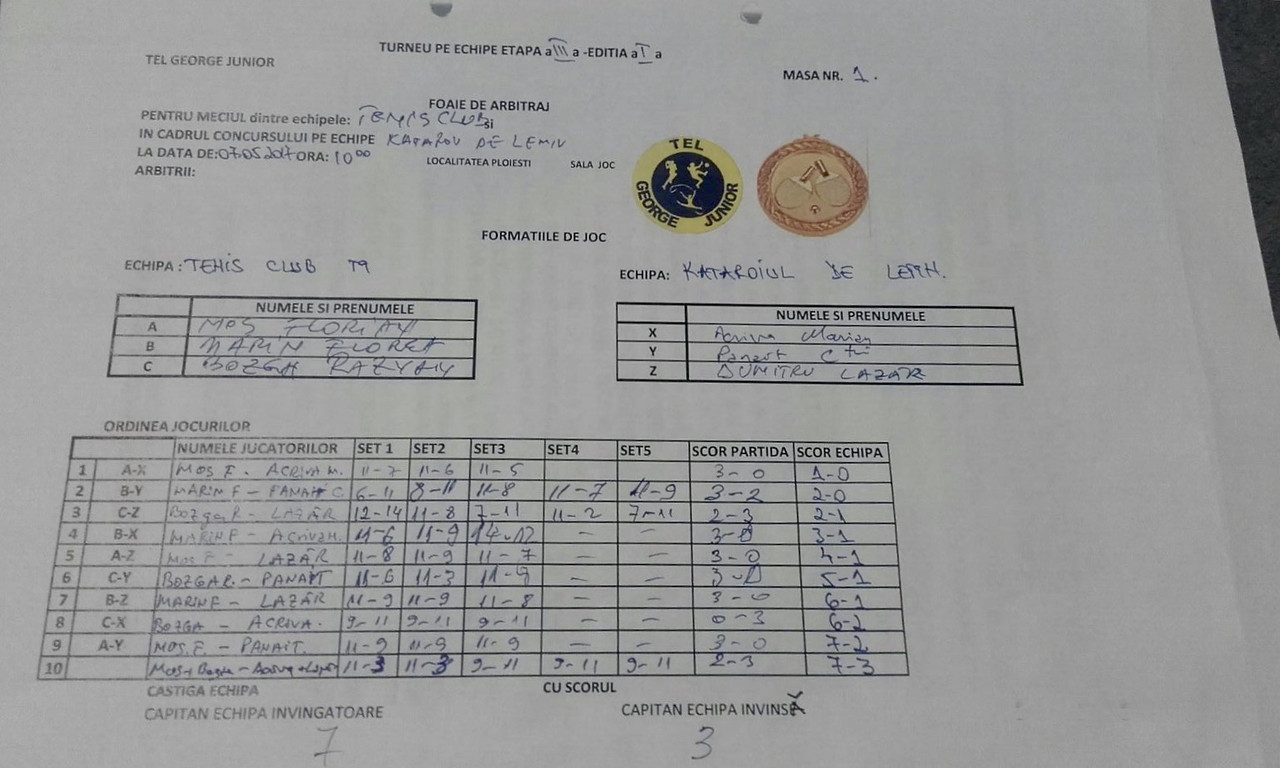 TURNEU PE ECHIPE ETAPA a III a -EDITIA a I a
TEL GEORGE JUNIOR
MASA NR. 1.
FOAIE DE ARBITRAJ
PENTRU MECIUL dintre echipele: TENIS CLUB si
IN CADRUL CONCURSULUI PE ECHIPE DE LEMN
LA DATA DE:07.05.2017 ORA: 10 00
LOCALITATEA PLOIESTI SALA JOC
ARBITRII:
TEL GEORGE JUNIOR
FORMATIILE DE JOC
ECHIPA : TENIS CLUB T9
ECHIPA: KATAROIUL DE LEMN.
NUMELE SI PRENUMELE
A MOS FLORIAN
B MARIN FLOREA
C BOZGA RAZVAN
NUMELE SI PRENUMELE
X Acriva Marian
Y Panait
Z DUMITRU LAZĂR
ORDINEA JOCURILOR
NUMELE JUCATORILOR SET 1 SET2 SET3 SET4 SET5 SCOR PARTIDA SCOR ECHIPA
1 A-X MOS F. - ACRIVA M. 11-7 11-6 11-5 3-0 1-0
2 B-Y MARIN F - PANAIT C 6-11 8-11 11-8 11-7 11-9 3-2 2-0
3 C-Z BOZGA R - LAZĂR 12-14 11-8 7-11 11-2 7-11 2-3 2-1
4 B-X MARIN F - ACRIVA M. 11-6 11-9 14-12 - - 3-0 3-1
5 A-Z MOS F - LAZĂR 11-8 11-9 11-7 - - 3-0 4-1
6 C-Y BOZGA R. - PANAIT 11-6 11-3 11-9 - - 3-0 5-1
7 B-Z MARIN F - LAZĂR 11-9 11-9 11-8 - - 3-0 6-1
8 C-X BOZGA - ACRIVA. 9-11 9-11 9-11 - - 0-3 6-2
9 A-Y MOS. F. - PANAIT. 11-9 11-9 11-9 - - 3-0 7-2
10 Mos+Bozga - Acriva+Lazăr 11-3 11-3 9-11 9-11 9-11 2-3 7-3
CASTIGA ECHIPA CU SCORUL
CAPITAN ECHIPA INVINGATOARE CAPITAN ECHIPA INVINSĂ
7 3